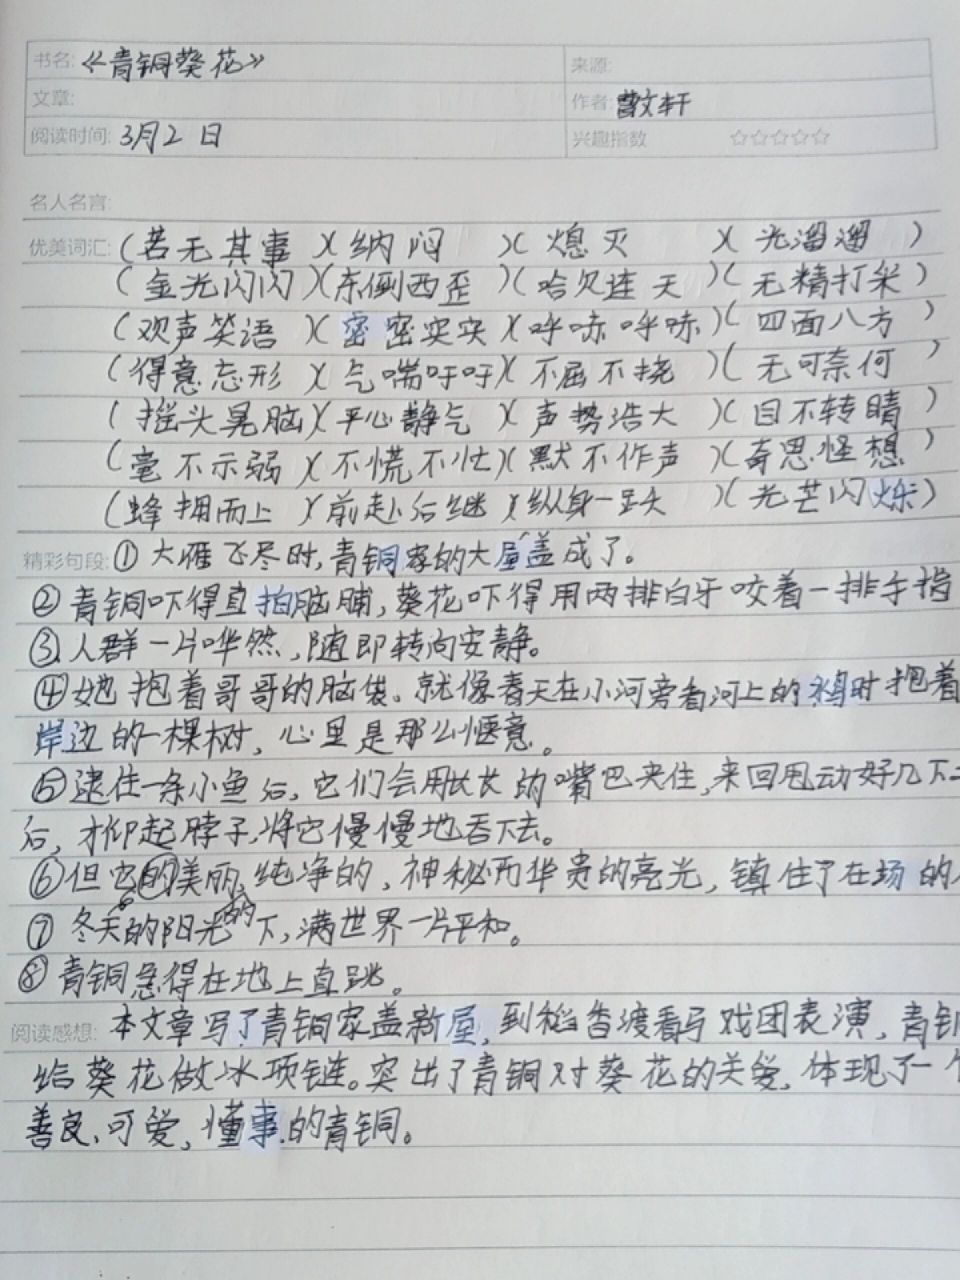 书名:《青铜葵花》 来源:
文章: 作者:曹文轩
阅读时间:3月2日 兴趣指数 ☆☆☆☆☆
名人名言:
优美词汇:(若无其事)(纳闷)(熄灭)(光溜溜)
(金光闪闪)(东倒西歪)(哈欠连天)(无精打采)
(欢声笑语)(密密实实)(呼哧呼哧)(四面八方)
(得意忘形)(气喘吁吁)(不屈不挠)(无可奈何)
(摇头晃脑)(平心静气)(声势浩大)(目不转睛)
(毫不示弱)(不慌不忙)(默不作声)(奇思怪想)
(蜂拥而上)(前赴后继)(纵身一跃)(光芒闪烁)
精彩句段:①大雁飞尽时,青铜家的大屋盖成了。
②青铜吓得直拍脑脯,葵花吓得用两排白牙咬着一排手指
③人群一片哗然,随即转向安静。
④她抱着哥哥的脑袋。就像春天在小河旁看河上的 时抱着
岸边的一棵树,心里是那么惬意。
⑤逮住一条小鱼后,它们会用长长的嘴巴夹住,来回甩动好几下
后,才仰起脖子,将它慢慢地吞下去。
⑥但它的美丽,纯净的,神秘而华贵的亮光,镇住了在场的
⑦冬天的阳光的下,满世界一片平和。
⑧青铜急得在地上直跳。
阅读感想:本文章写了青铜家盖新屋,到稻香渡看马戏团表演,青铜
给葵花做冰项链。突出了青铜对葵花的关爱,体现了一个
善良、可爱,懂事的青铜。